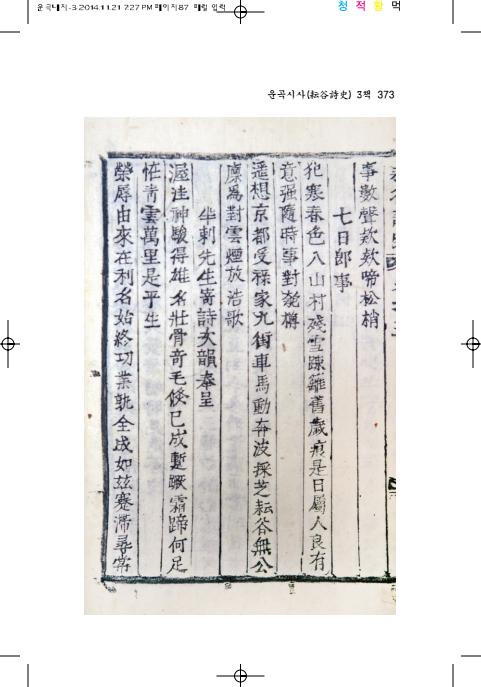 운곡내지-3 2014.11.21 7:27 PM 페이지87 매킬 입력
청 적 황 먹
운곡시사(耘谷詩史) 3책 373
事數聲欸欸啼松梢
七日郎事
犯寒春色入山村殘雪踈籬舊歲痕是日屬人良有
意强隨時事對匏樽
遥想京都受祿家九街車馬動奔波採芝耘谷無公
廩爲對雲煙放浩歌
半刺先生寄詩次韻奉呈
渥洼神駿得雄名壯骨奇毛倐已成蹔蹶霜蹄何足
恠靑雲萬里是平生
榮辱由來在利名始終功業孰全成如玆蹇滯尋常